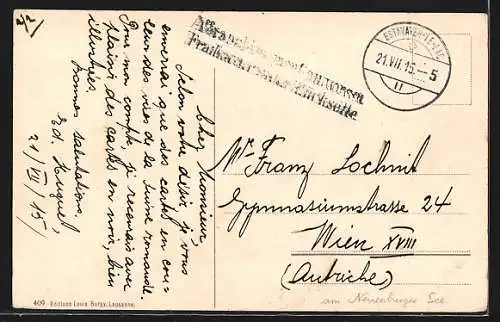 2/2
Cher Monsieur,
Selon votre désir, je vous
enverrai que des cartes en cou-
leur des vues de la Suisse romande.
Pour mon compte, je recevrais avec
plaisir des cartes en noir, bien
illustrées.
Bonnes salutations,
Ed. Huguet
21/VII/15/
ESTAVAYER-LE-LAC
21.VII.15.–5
Mr Franz Lochnit
Gymnasiumstrasse 24
Wien XVIII
(Autriche)
am Neuenburger See
409 Edition Louis Burgy, Lausanne.